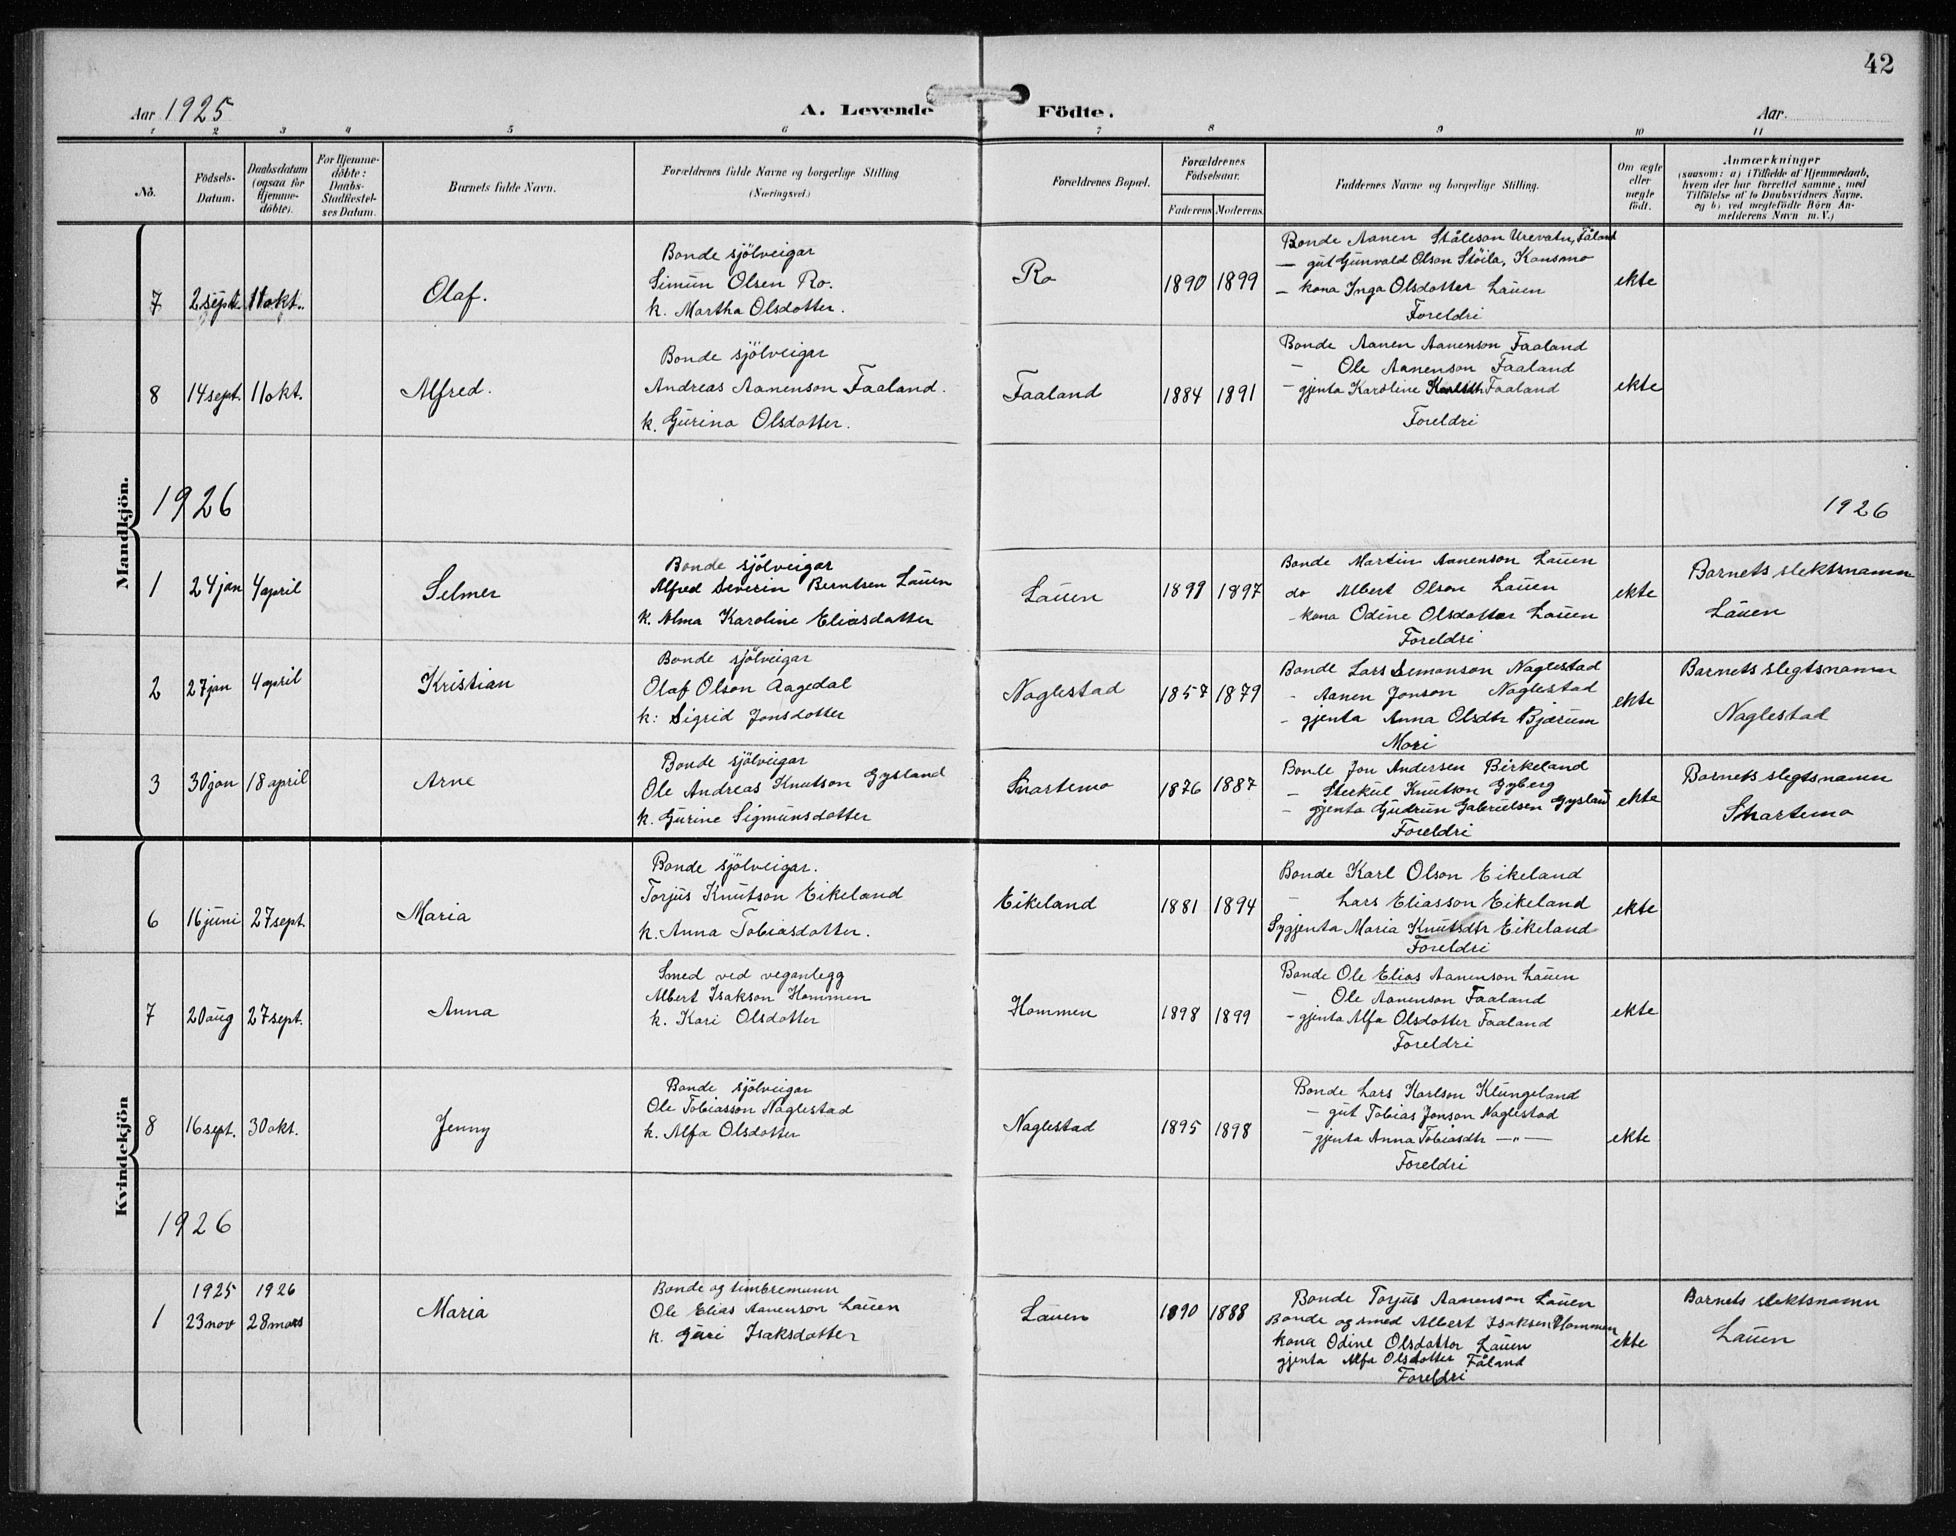 42
Aar 1925
A. Levende Födte.
Aar
1 2 3 4 5 6 7 8 9 10 11
Nô.
Födsels-
Datum.
Daabsdatum
(ogsaa for
Hjemme-
döbte).
For Hjemme-
döbte:
Daabs-
Stadfæstel-
ses Datum.
Barnets fulde Navn.
Forældrenes fulde Navne og borgerlige Stilling
(Næringsvei.)
Forældrenes Bopæl.
Forældrenes
Födselsaar.
Faderens Moderens
Faddernes Navne og borgerlige Stilling.
Om ægte
eller
uægte
födt.
Anmærkninger
(saasom: a) i Tilfælde af Hjemmedaab,
hvem der har forrettet samme, med
Tilföielse af to Daabsvidners Navne.
og b) ved uægtefödte Börn An-
melderens Navn m. V.)
Mandkjön.
7 2 sept. 11 okt. Olaf.
Bonde sjölveigar
Simun Olsen Ro.
k. Martha Olsdotter.
Ro 1890 1899
Bonde Aanen Ståleson Urevatn, Fåland
— gut Gunvald Olson Stöila, Konsmo
— kona Inga Olsdotter Lauen
Foreldri
ekte
8 14 sept. 11 okt. Alfred.
Bonde sjölveigar
Andreas Aanenson Faaland.
k. Gurina Olsdotter.
Faaland 1884 1891
Bonde Aanen Aanenson Faaland
— Ole Aanenson Faaland
— gjenta Karoline Faaland
Foreldri
ekte
1926
1926
1 24 jan 4 april Selmer
Bonde sjölveigar
Alfred Severin Berntsen Lauen
k. Alma Karoline Eliasdotter
Lauen 1899 1897
Bonde Martin Aanenson Lauen
do Albert Olson Lauen
- kona Odine Olsdotter Lauen
Foreldri
ekte
Barnets slektsnamn
Lauen
2 27 jan 4 april Kristian
Bonde sjölveigar
Olaf Olson Aagedal
k: Sigrid Jonsdotter
Naglestad 1857 1879
Bonde Lars Semonson Naglestad
- Aanen Jonson Naglestad
- gjenta Anna Olsdtr Bjærum
Mori
ekte
Barnets slegtsnamn
Naglestad
3 30 jan 18 april Arne
Bonde sjölveigar
Ole Andreas Knutson Gysland
k. Gurine Sigmunsdotter
Snartemo 1876 1887
Bonde Jon Andersen Birkeland
- Sterkul Knutson Gyberg
- gjenta Gudrun Gabrielsen Gysland
Foreldri
ekte
Barnets slegtsnamn
Snartemo
Kvindekjön
6 16 juni 27 sept. Maria
Bonde sjölveigar.
Torjus Knutson Eikeland
k. Anna Tobiasdotter.
Eikeland 1881 1894
Bonde Karl Olson Eikeland
— Lars Eliasson Eikeland
Sygjenta Maria Knutsdtr Eikeland
Foreldri
ekte
7 20 aug 27 sept. Anna
Smed ved veganlegg
Albert Isakson Hommen
k. Kari Olsdotter
Hommen 1898 1899
Bonde Ole Elias Aanenson Lauen
— Ole Aanenson Faaland
- gjenta Alfa Olsdotter Faaland
Foreldri
ekte
8 16 sept. 30 okt. Jenny
Bonde sjölveigar
Ole Tobiasson Naglestad
k. Alfa Olsdotter
Naglestad 1895 1898
Bonde Lars Karlson Klungeland
— gut Tobias Jonson Naglestad
- gjenta Anna Tobiasdtr —"—
Foreldri
ekte
1926
1925 1926
1 23 nov 28 mars Maria
Bonde og timbremann
Ole Elias Aanenson Lauen
k. Guri Isaksdotter
Lauen 1890 1888
Bonde Torjus Aanenson Lauen
Bonde og smed Albert Isaksen Hommen
kona Odine Olsdotter Lauen
gjenta Alfa Olsdotter Fåland
Foreldri
ekte
Barnets slektsnamn
Lauen